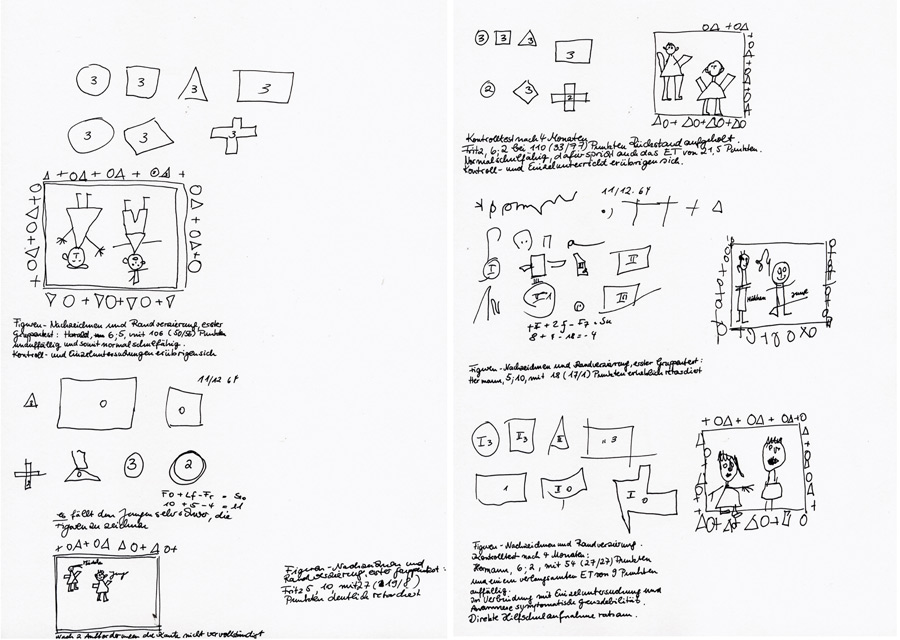 3 3 3 3
3 3 3
△ + O△ + O△ + O△ +
Figuren-Nachzeichnen und Randverzierung, erster
Gruppentest: Harold, 6;5, mit 106 (50/56) Punkten
unauffällig und somit normalschulfähig.
Kontroll- und Einzeluntersuchungen erübrigen sich
11/12 64
0 0
0 3 2
F0 + Lf - Fr = Su
10 + 5 - 4 = 11
es fällt dem Jungen sehr schwer, die
Figuren zu zeichnen
+ O△ + O△ △ O △ O+
Nach 2 Aufforderungen die Kante nicht vervollständigt
Figuren-Nachzeichnen und
Randverzierung, erster Gruppentest:
Fritz 5, 10 mit 27 (19/8)
Punkten deutlich retardiert
3 3 3 3
2 3 2
O△ + O△
△O+ △O+△O+△O
Kontrolltest nach 4 Monaten
Fritz, 6;2 bei 110 (33/77) Punkten Rückstand aufgeholt.
Normalschulfähig, dafür spricht auch das ET von 21,5 Punkten.
Kontroll- und Einzelunterricht erübrigen sich.
11/12.64
I II
II 1 III
+ △
8 + = -4
Mädchen Junge
Figuren-Nachzeichnen und Randverzierung, erster Gruppentest:
Hermann, 5;10, mit 18 (17/1) Punkten erheblich retardiert
I3 I3 II "3
1 I 0 I 0
+ O△ + O△ + O△+O
Figuren-Nachzeichnen und Randverzierung.
Kontrolltest nach 4 Monaten:
Hermann, 6;2, mit 54 (27/27) Punkten
und einem verlangsamten ET von 9 Punkten
auffällig.
In Verbindung mit Einzeluntersuchung und
Anamnese symptomatische Grenzdebilität.
Direkte Hilfsschulaufnahme ratsam.